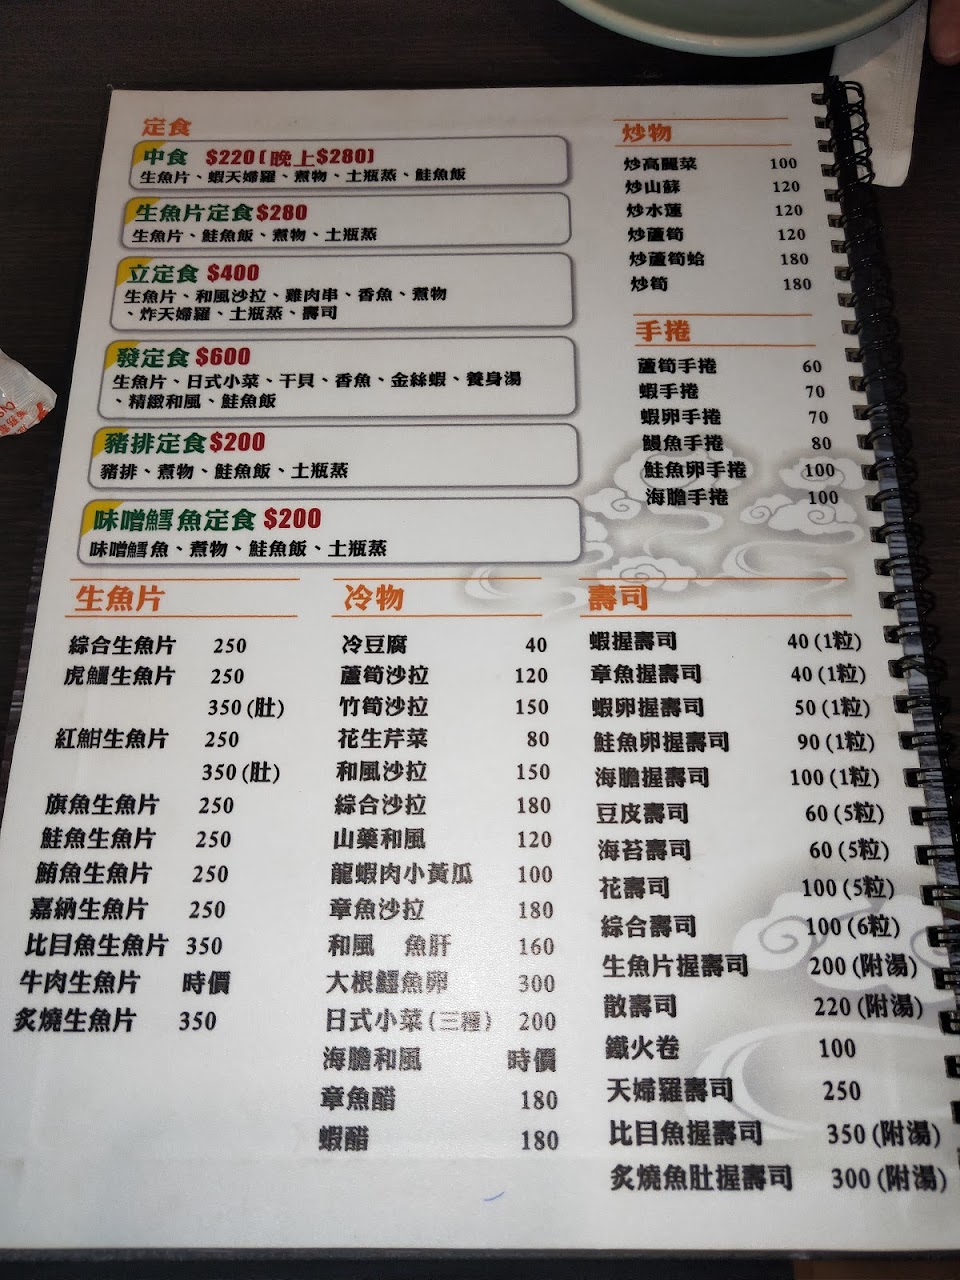 定食
中食 $220(晚上$280)
生魚片、蝦天婦羅、煮物、土瓶蒸、鮭魚飯
生魚片定食$280
生魚片、鮭魚飯、煮物、土瓶蒸
立定食 $400
生魚片、和風沙拉、雞肉串、香魚、煮物
、炸天婦羅、土瓶蒸、壽司
發定食 $600
生魚片、日式小菜、干貝、香魚、金絲蝦、養身湯
、精緻和風、鮭魚飯
豬排定食$200
豬排、煮物、鮭魚飯、土瓶蒸
味噌鱈魚定食 $200
味噌鱈魚、煮物、鮭魚飯、土瓶蒸
炒物
炒高麗菜 100
炒山蘇 120
炒水蓮 120
炒蘆筍 120
炒蘆筍蛤 180
炒筍 180
手捲
蘆筍手捲 60
蝦手捲 70
蝦卵手捲 70
鰻魚手捲 80
鮭魚卵手捲 100
海膽手捲 100
生魚片
綜合生魚片 250
虎鱺生魚片 250
350(肚)
紅魽生魚片 250
350(肚)
旗魚生魚片 250
鮭魚生魚片 250
鮪魚生魚片 250
嘉納生魚片 250
比目魚生魚片 350
牛肉生魚片 時價
炙燒生魚片 350
冷物
冷豆腐 40
蘆筍沙拉 120
竹筍沙拉 150
花生芹菜 80
和風沙拉 150
綜合沙拉 180
山藥和風 120
龍蝦肉小黃瓜 100
章魚沙拉 180
和風 魚肝 160
大根鱈魚卵 300
日式小菜(三種) 200
海膽和風 時價
章魚醋 180
蝦醋 180
壽司
蝦握壽司 40(1粒)
章魚握壽司 40(1粒)
蝦卵握壽司 50(1粒)
鮭魚卵握壽司 90(1粒)
海膽握壽司 100(1粒)
豆皮壽司 60(5粒)
海苔壽司 60(5粒)
花壽司 100(5粒)
綜合壽司 100(6粒)
生魚片握壽司 200(附湯)
散壽司 220(附湯)
鐵火卷 100
天婦羅壽司 250
比目魚握壽司 350(附湯)
炙燒魚肚握壽司 300(附湯)